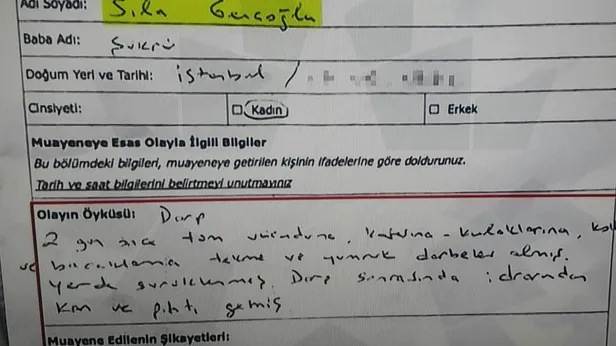 Adı Soyadı: Sıla Gençoğlu
Baba Adı: Şükrü
Doğum Yeri ve Tarihi: İstanbul /
Cinsiyeti: Kadın Erkek
Muayeneye Esas Olayla İlgili Bilgiler
Bu bölümdeki bilgileri, muayeneye getirilen kişinin ifadelerine göre doldurunuz.
Tarih ve saat bilgilerini belirtmeyi unutmayınız
Olayın Öyküsü: Darp
2 gün önce tüm vücuduna, kafasına - kulaklarına, kol
ve bacaklarına tekme ve yumruk darbeleri almış.
yerde sürüklenmiş. Darp sonrasında idrarından
kan ve pıhtı gelmiş
Muayene Edilenin Şikayetleri: